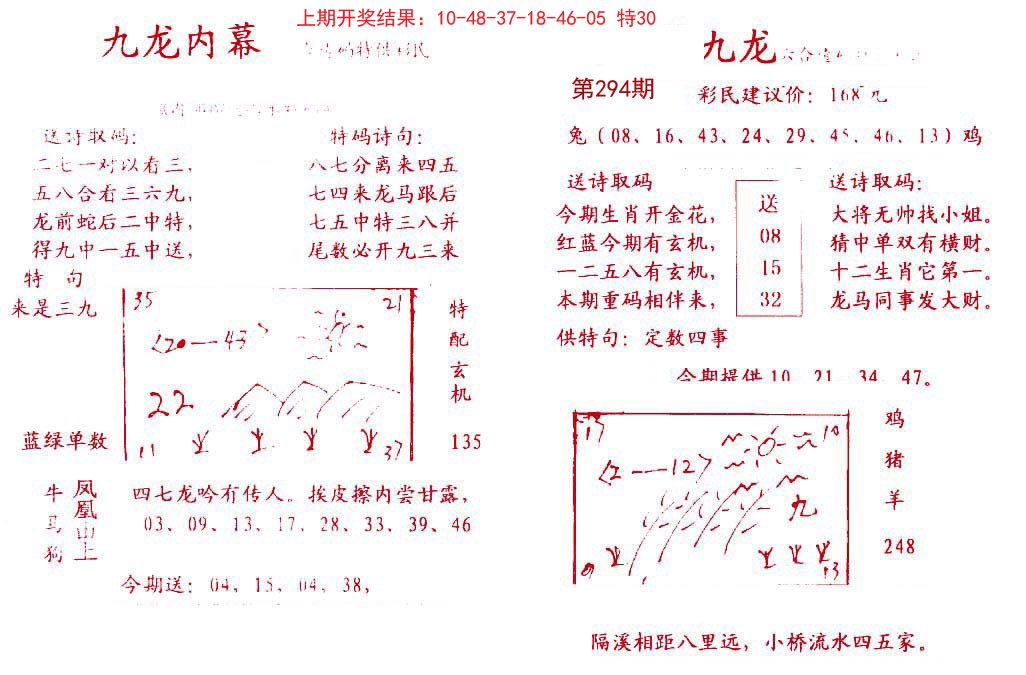 上期开奖结果：10-48-37-18-46-05 特30
九龙内幕
码特供彩民
送诗取码：
二七一对以看三，
五八合看三六九，
龙前蛇后二中特，
得九中一五中送，
特码诗句：
八七分离来四五
七四来龙马跟后
七五中特三八并
尾数必开九三来
特 句
来是三九
蓝绿单数
35
21
<20—43>
22
11
37
特配玄机
135
牛马狗
凤凰山上
四七龙吟有传人。挨皮擦内尝甘露，
03、09、13、17、28、33、39、46
今期送：04，15，04，38，
九龙
六合
第294期
彩民建议价：168元
兔（08、16、43、24、29、45、46、13）鸡
送诗取码
今期生肖开金花，
红蓝今期有玄机，
一二五八有玄机，
本期重码相伴来，
送
08
15
32
送诗取码：
大将无帅找小姐。
猜中单双有横财。
十二生肖它第一。
龙马同事发大财。
供特句：定数四事
今期提供10、21、34、47。
17
10
<2—12>
九
9
13
鸡
猪
羊
248
隔溪相距八里远，小桥流水四五家。